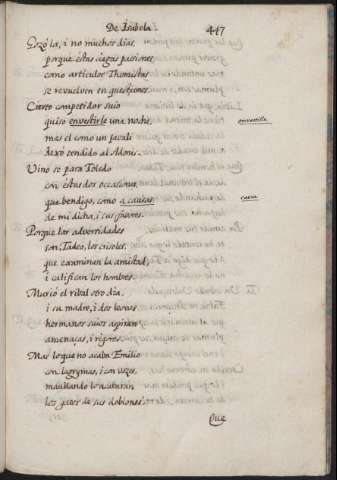 De Isabela 447
Gozó la, i no muchos dias,
porque estas ciegas pasiones
como articulos Thomistas
se revuelven en questiones.
Cierto competidor suio
quiso envestirle una noche, envestille
mas el como un javali
dexó tendido al Adonis.
Vino se para Toledo
con estas dos occasiones,
que bendigo, como a causas causa
de mi dicha, i sus favores.
Porque las adversidades
son, Tadeo, los crisoles,
que examinan la amistad,
i califican los hombres.
Murió el ribal otro dia,
i su madre, i dos
hermanos suios aspiran
amenaças, i rigores.
Mas lo que no acaba Emilio
con lagrymas, i con vozes,
maullando lo
los gatos de sus doblones.
Que